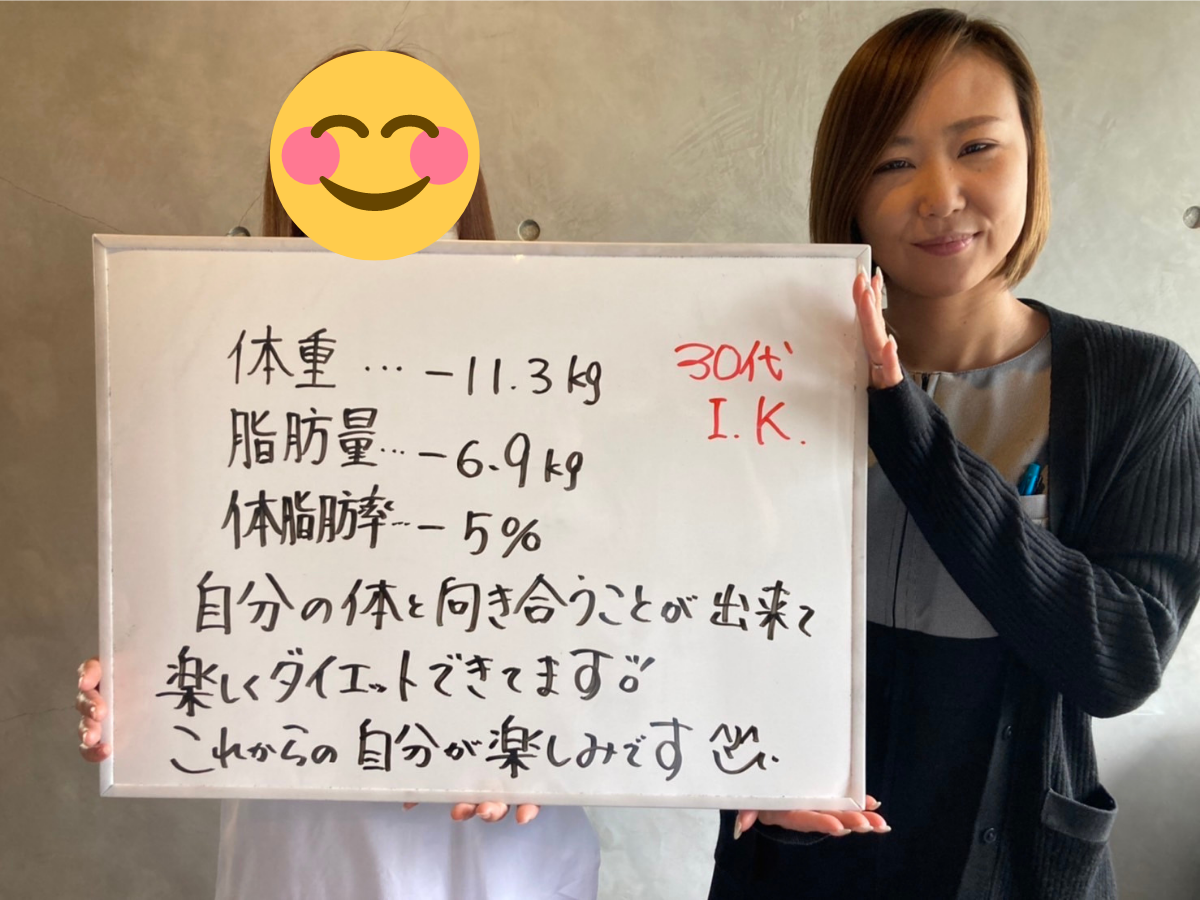 体重 … -11.3kg
脂肪量… -6.9kg
体脂肪率… -5%
30代
I.K.
自分の体と向き合うことが出来て
楽しくダイエットできてます!!
これからの自分が楽しみです